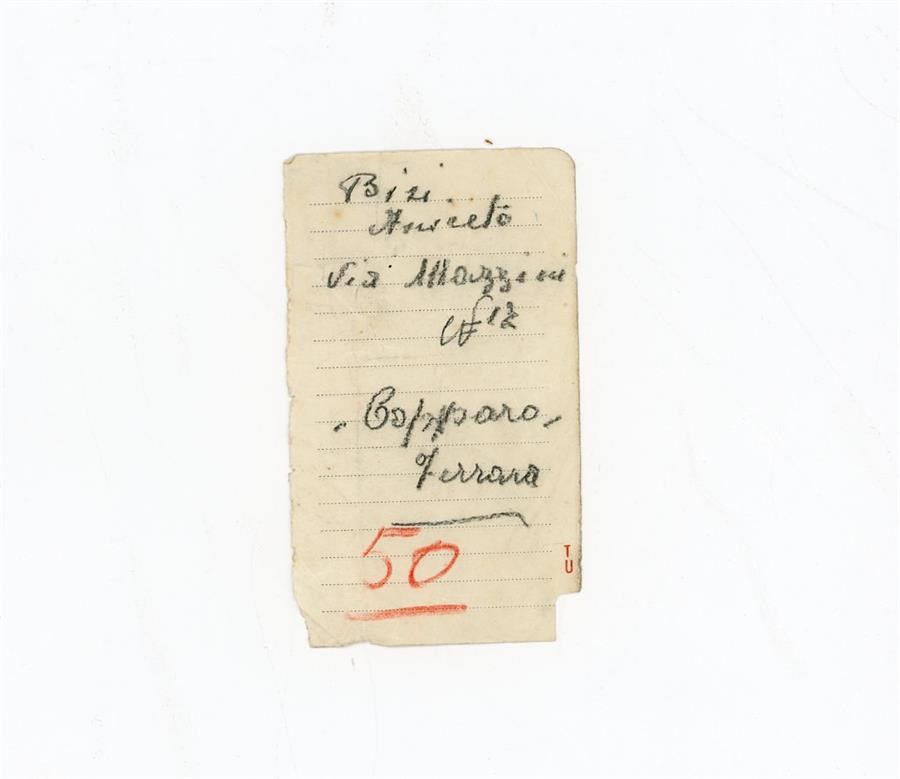 Bizi
Aniceto
Via Mazzini
N 12
Copparo
Ferrara
50
T
U